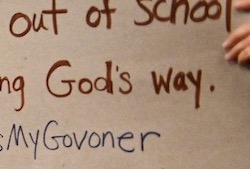 out of school
ng God's way.
sMyGovoner